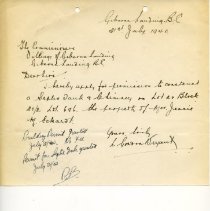 Gibsons Landing, B.C.
2nd July 1940.
The Commissioner
Village of Gibsons Landing
Gibsons Landing B.C.
Dear Sir:
I hereby apply for permission to construct
a Septic Tank & Chimney on Lot 20 Block
Lot 686 the property of Mrs. Jennie
M. Eckardt
Building Permit granted
July
Permit for Septic Tank granted
July
Yours truly